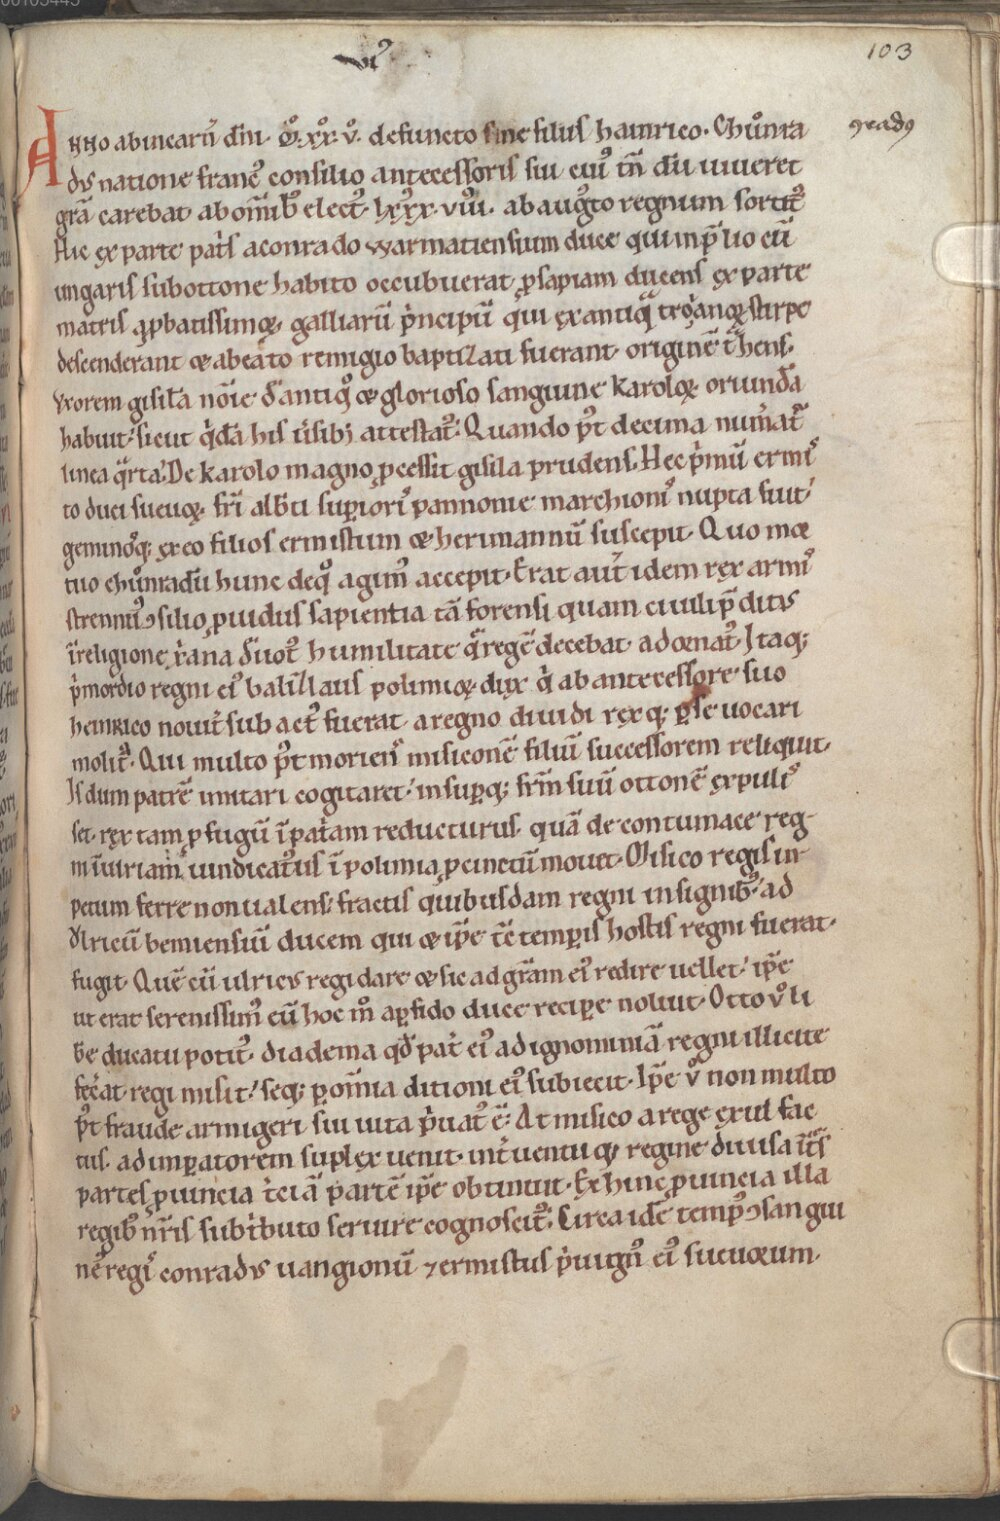 103
ANNO ab incarñ dñi. ꝏ̊. xx̊. v̊. defuncto sine filiis hainrico. Chůnra
9radꝰ
dus natione franc̄ consilio antecessoris sui cuiꝰ tñ dũ uiueret
gr̄a carebat ab om̄ibꝰ electꝰ. lxxxviiiꝰ. ab augꝰto regnum sortitꝰ
Hic ex parte pat̓s a conrado warmatiensium duce qui in p̄lio cũ
ungaris sub ottone habito occubuerat ꝓsapiam ducens ex parte
matris ꝓbatissimoꝝ galliarũ p̓ncipũ qui ex antiq̈ troianoꝝ stirpe
descenderant & a beato remigio baptizati fuerant originē t̓hens.
Vxorem gisilã nōie d̄ antiqꝰ & glorioso sanguine karoloꝝ oriundã
habuit. sicut q̓dã his ūsibꝫ attestat̃. Quando p̓t decima num̓at̃
linea q̈rta. De karolo magno ꝓcessit gisila prudens. Hec p̓mũ ermiꝰ
to duci sueuoꝝ. fr̃i alb̓ti sup̱ioriꝰ pannonie marchioniꝰ nupta fuit.
geminosqꝫ ex eo filios ermistum & herimannũ suscepit. Quo moꝛ
tuo chůnradũ hunc de qꝰ agimꝰ accepit. Erat aut̃ idem rex armiꝰ
strennuꝰ ꝯsilio ꝓuidus sapientia tã forensi quam ciuili p̄ditus
ĩ religione xp̓iana d̓uotꝰ humilitate q̃ regē decebat adoꝛnatꝰ. Itaqꝫ
p̓mordio regni eiꝰ balizlaus polimioꝝ dux q̓ ab antecessore suo
heinrico nouit̓ subactꝰ fuerat a regno diuidi rexqꝫ ꝑ se uocari
molit̃. Qui multo p̓t moriens misiconē filiũ successorem reliquit.
Is dum patrē imitari cogitaret. insup̱qꝫ fr̃m suũ ottonē expuliꝰ
set. rex tam ꝓfugũ ĩ pat̓am reducturus. quã de contumace reg
m ĩiuriam uindicatꝰus ĩ polimia ꝓcinctũ mouet. Misico regis in
petum ferre non ualens. fractis quibusdam regni insignibꝰ. ad
Ǒlricũ bemiensiũ ducem qui & ip̃e tc̄ temp̱is hostis regni fuerat.
fugit. Quē cũ ulricus regi dare & sic ad gr̄am eiꝰ redire uellet. ip̃e
ut erat serenissimꝰ cũ hoc m̊ a ꝑfido duce recip̱e noluit. Otto v̊ li
b̓e ducatu potitꝰ. diadema qd̄ pat̓ eiꝰ ad ignominiã regni illicite
fec̓at. regi misit. seqꝫ ꝑ om̃ia ditioni eiꝰ subiecit. Ip̃e v̊ non multo
p̓t fraude armigeri sui uita p̓uatꝰ ē. At misico a rege exul fac
tus. ad imp̱atorem suplex uenit. int̓uentuqꝫ regine diuisa ĩ t̃s
partes ꝓuincia t̓ciã partē ip̃e obtinuit. Ex hinc ꝓuincia illa
regibꝰ nr̃is sub t̓ibuto seruire cognoscit̃. Circa idē tempꝰ ꝯsangui
nēꝰ regiꝰ conradus uangionũ ⁊ ermistus p̓uignꝰ eiꝰ sueuoꝛum.